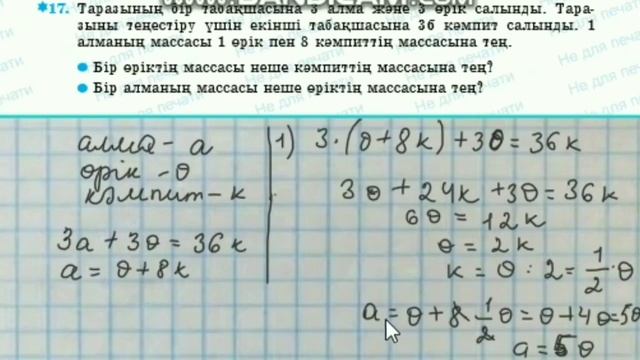 *17. Таразының бір табақшасына 3 алма және 3 өрік салынды. Тара-
зыны теңестіру үшін екінші табақшасына 36 кәмпит салынды. 1
алманың массасы 1 өрік пен 8 кәмпиттің массасына тең.
Бір өріктің массасы неше кәмпиттің массасына тең?
Бір алманың массасы неше өріктің массасына тең?
Не для печати
алма - а
өрік - ө
кәмпит - к
3а + 3ө = 36 к
а = ө + 8 к
1) 3 · (ө + 8 к) + 3ө = 36 к
3 ө + 24к + 3ө = 36 к
6 ө = 12 к
ө = 2 к
к = ө : 2 = 1/2 · ө
а = ө + 8 · 1/2 ө = ө + 4 ө = 5ө
а = 5 ө